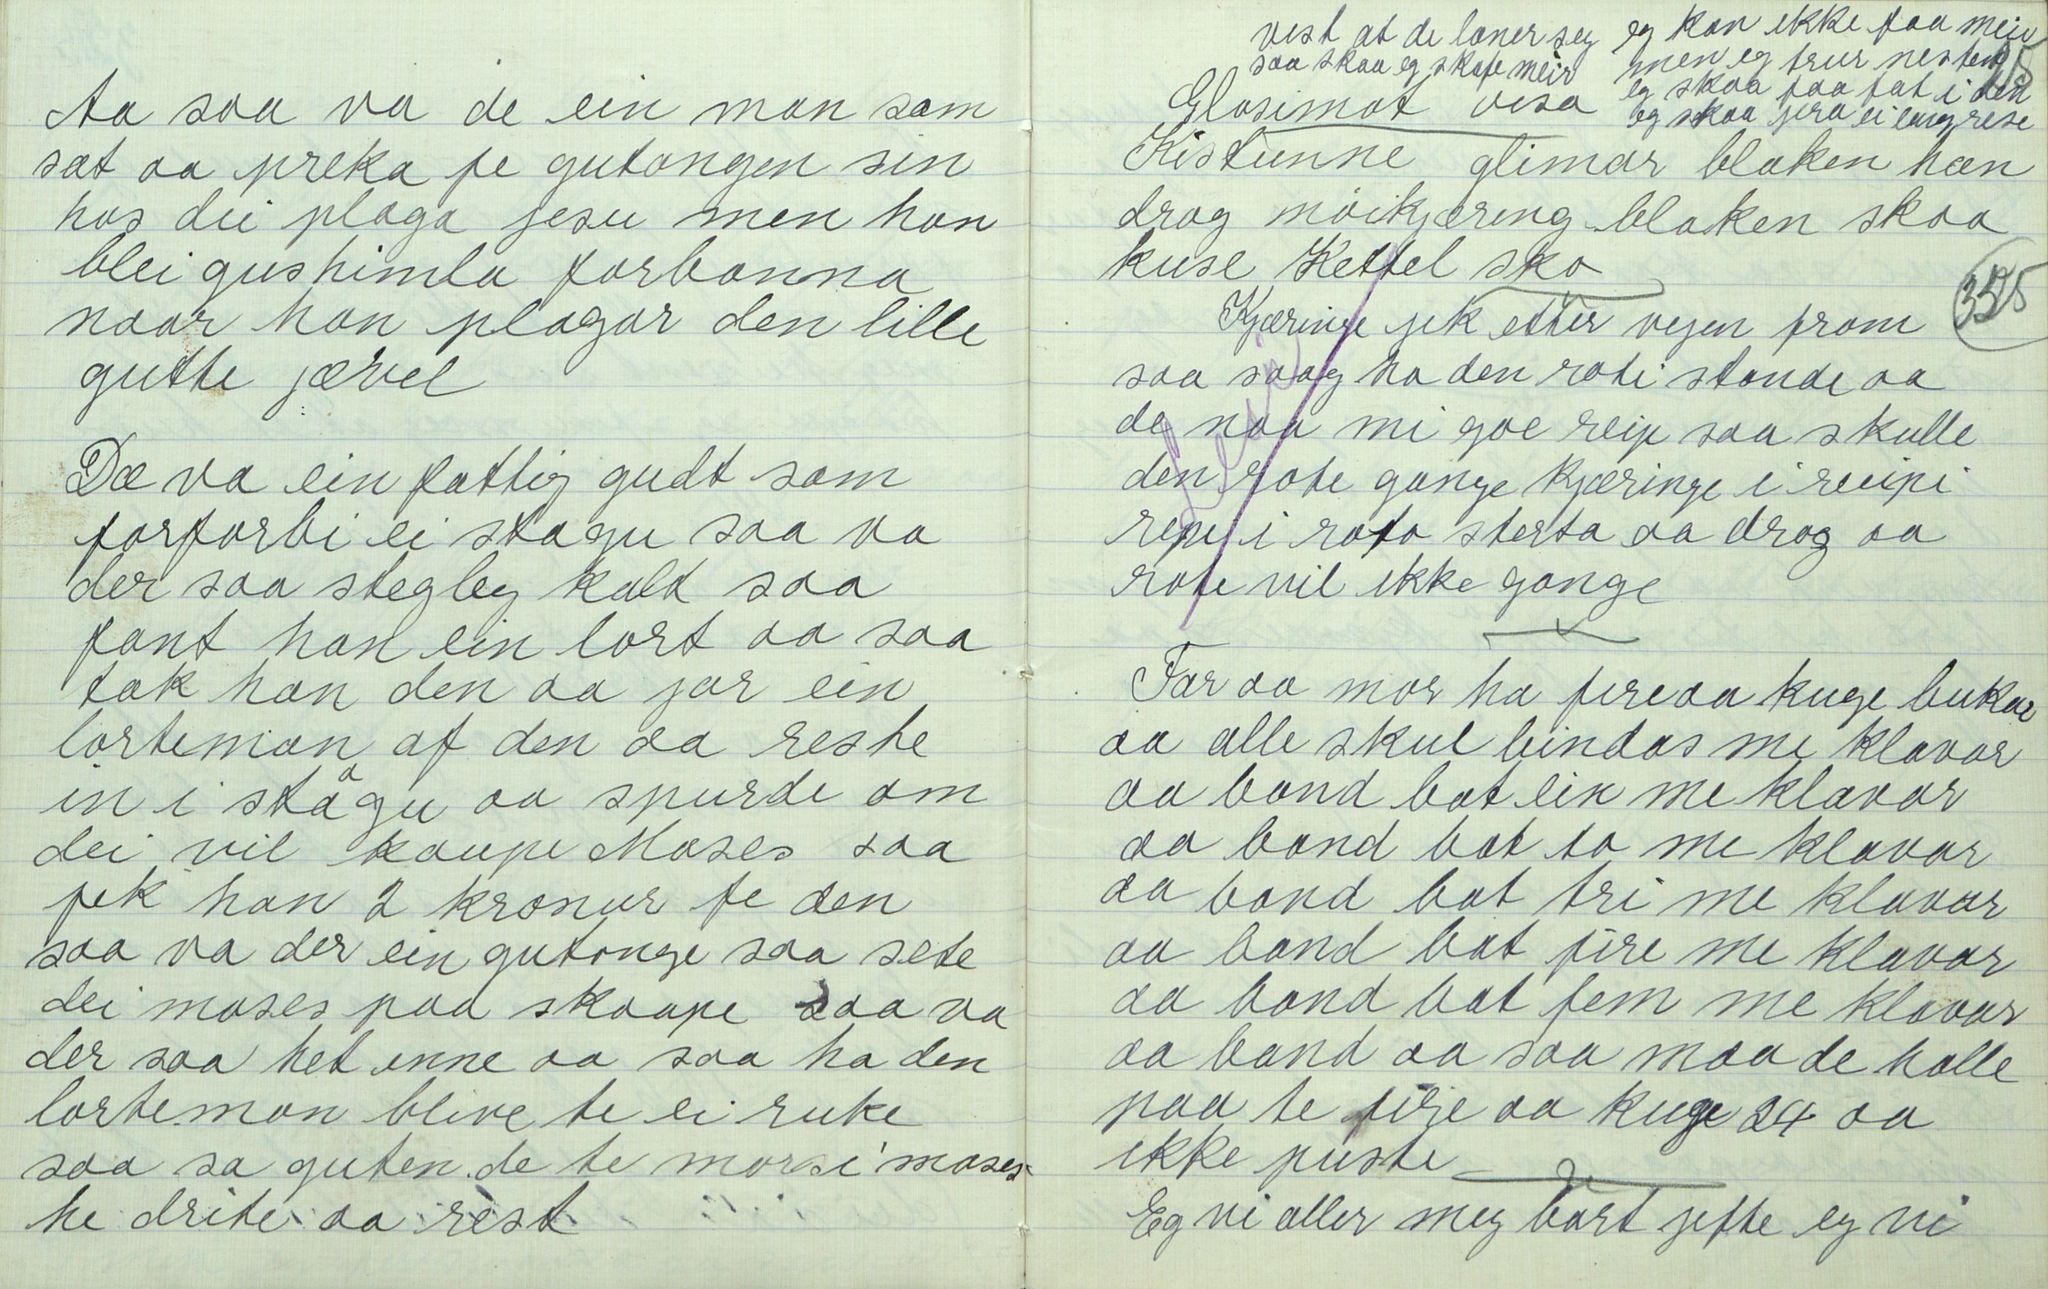 Aa saa va de ein man som
sat aa preka fe gutongen sin
hos dei plaga jesu men han
blei gushimla forbanna
naar han plagar den lille
gutte jævel
Dæ va ein fattig gudt som
forforbi ei stogu saa va
der saa stegleg kalt saa
fant han ein lort aa saa
tok han den aa jor ein
lorteman af den aa reste
in i stågu aa spurde om
dei vil kaupe Moses saa
fek han 2 kronur fe den
saa va der ein gutonge saa sete
dei moses paa skaape saa va
der saa het inne aa saa ha den
lorteman blive te ei ruke
saa sa guten de te mor si moses
he drite aa rest
vest at de løner seg
saa skaa eg skafe meir
eg kan ikke faa meir
men eg trur nesten
eg skaa faa fat i den
eg skaa jera ei lang rese
Glosimot visa
Kistunne glimar blaken han
drog moikjæring blaken skaa
kuse Kettel sko
3575
Kjæringe jek etter vejen fram
saa saag ha den rote stande aa
de naa mi goe reip saa skulle
den rote gange kjæringe i reipi
repe i rota sterta aa drog aa
rote vil ikke gange
Far aa mor ha fire aa kuge bukar
aa alle skul bindas me klavar
aa band bat ein me klavar
aa band bat to me klavar
aa band bat tri me klavar
aa band bat fire me klavar
aa band bat fem me klavar
aa band aa saa maa de halle
paa te fire aa kuge 24 aa
ikke puste
Eg vi aller meg bort jefte eg vi